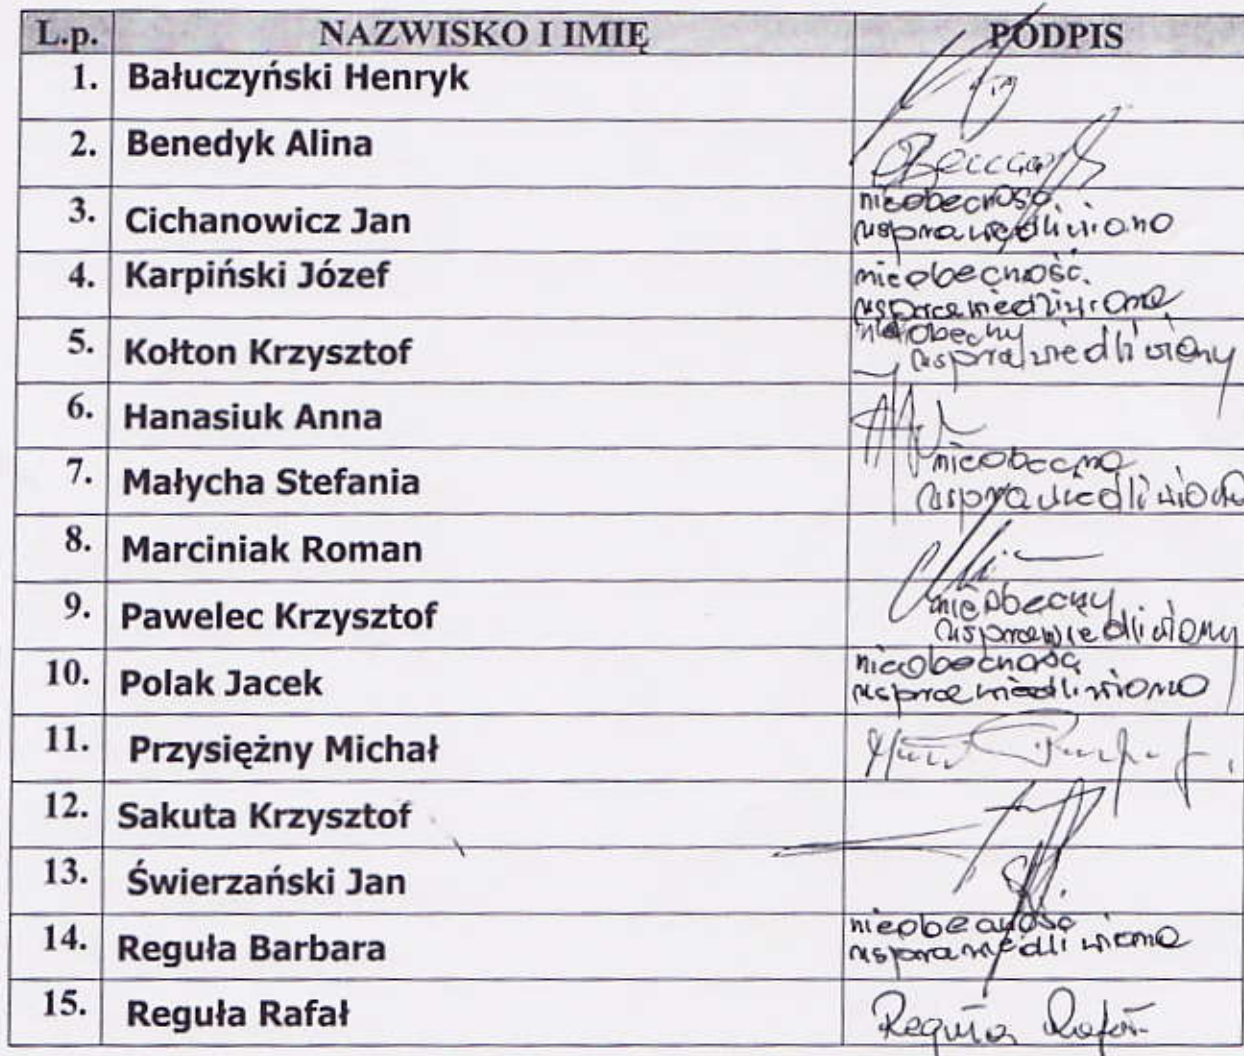 L.p. NAZWISKO I IMIĘ PODPIS
1. Bałuczyński Henryk
2. Benedyk Alina
3. Cichanowicz Jan nieobecność
usprawiedliwiona
4. Karpiński Józef nieobecność
usprawiedliwiona
5. Kołton Krzysztof nieobecny
usprawiedliwiony
6. Hanasiuk Anna
7. Małycha Stefania nieobecna
usprawiedliwiona
8. Marciniak Roman
9. Pawelec Krzysztof nieobecny
usprawiedliwiony
10. Polak Jacek nieobecność
usprawiedliwiona
11. Przysiężny Michał
12. Sakuta Krzysztof
13. Świerzański Jan
14. Reguła Barbara nieobecność
usprawiedliwiona
15. Reguła Rafał Reguła Rafał